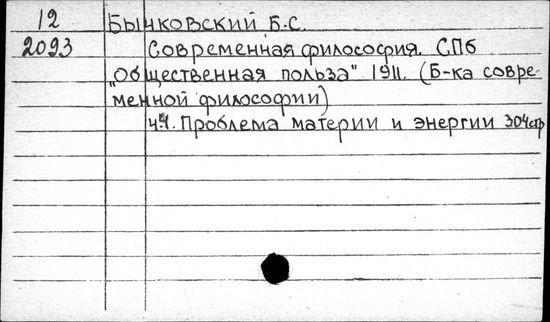 12 Бычковский Б.С.
2093 Современная философия. СПб
"Общественная польза" 1911. (Б-ка совре-
менной философии)
ч.1. Проблема материи и энергии 304стр